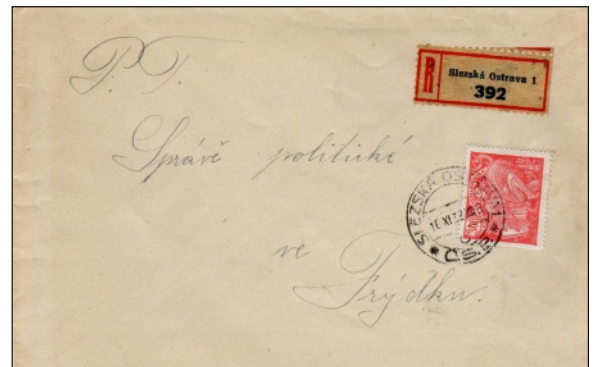 P. T.
R
Slezská Ostrava 1
392
Správě politické
SLEZSKÁ OSTRAVA 1
16 XI
ČSR
ve
Frýdku.